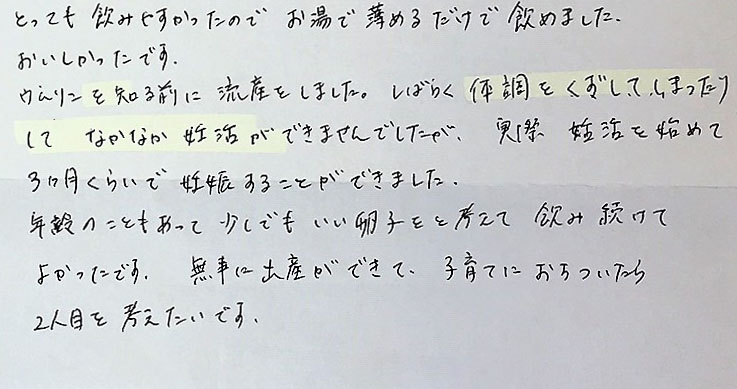 とっても 飲みやすかったので お湯で 薄めるだけで 飲めました.
おいしかったです.
ウムリンを知る前に 流産をしました。しばらく 体調をくずしてしまったり
して なかなか 妊活ができませんでしたが、実際 妊活を始めて
3ヶ月くらいで 妊娠することができました.
年齢のこともあって 少しでも いい卵子をと考えて 飲み続けて
よかったです. 無事に出産ができて、子育てに おちついたら
2人目を考えたいです.